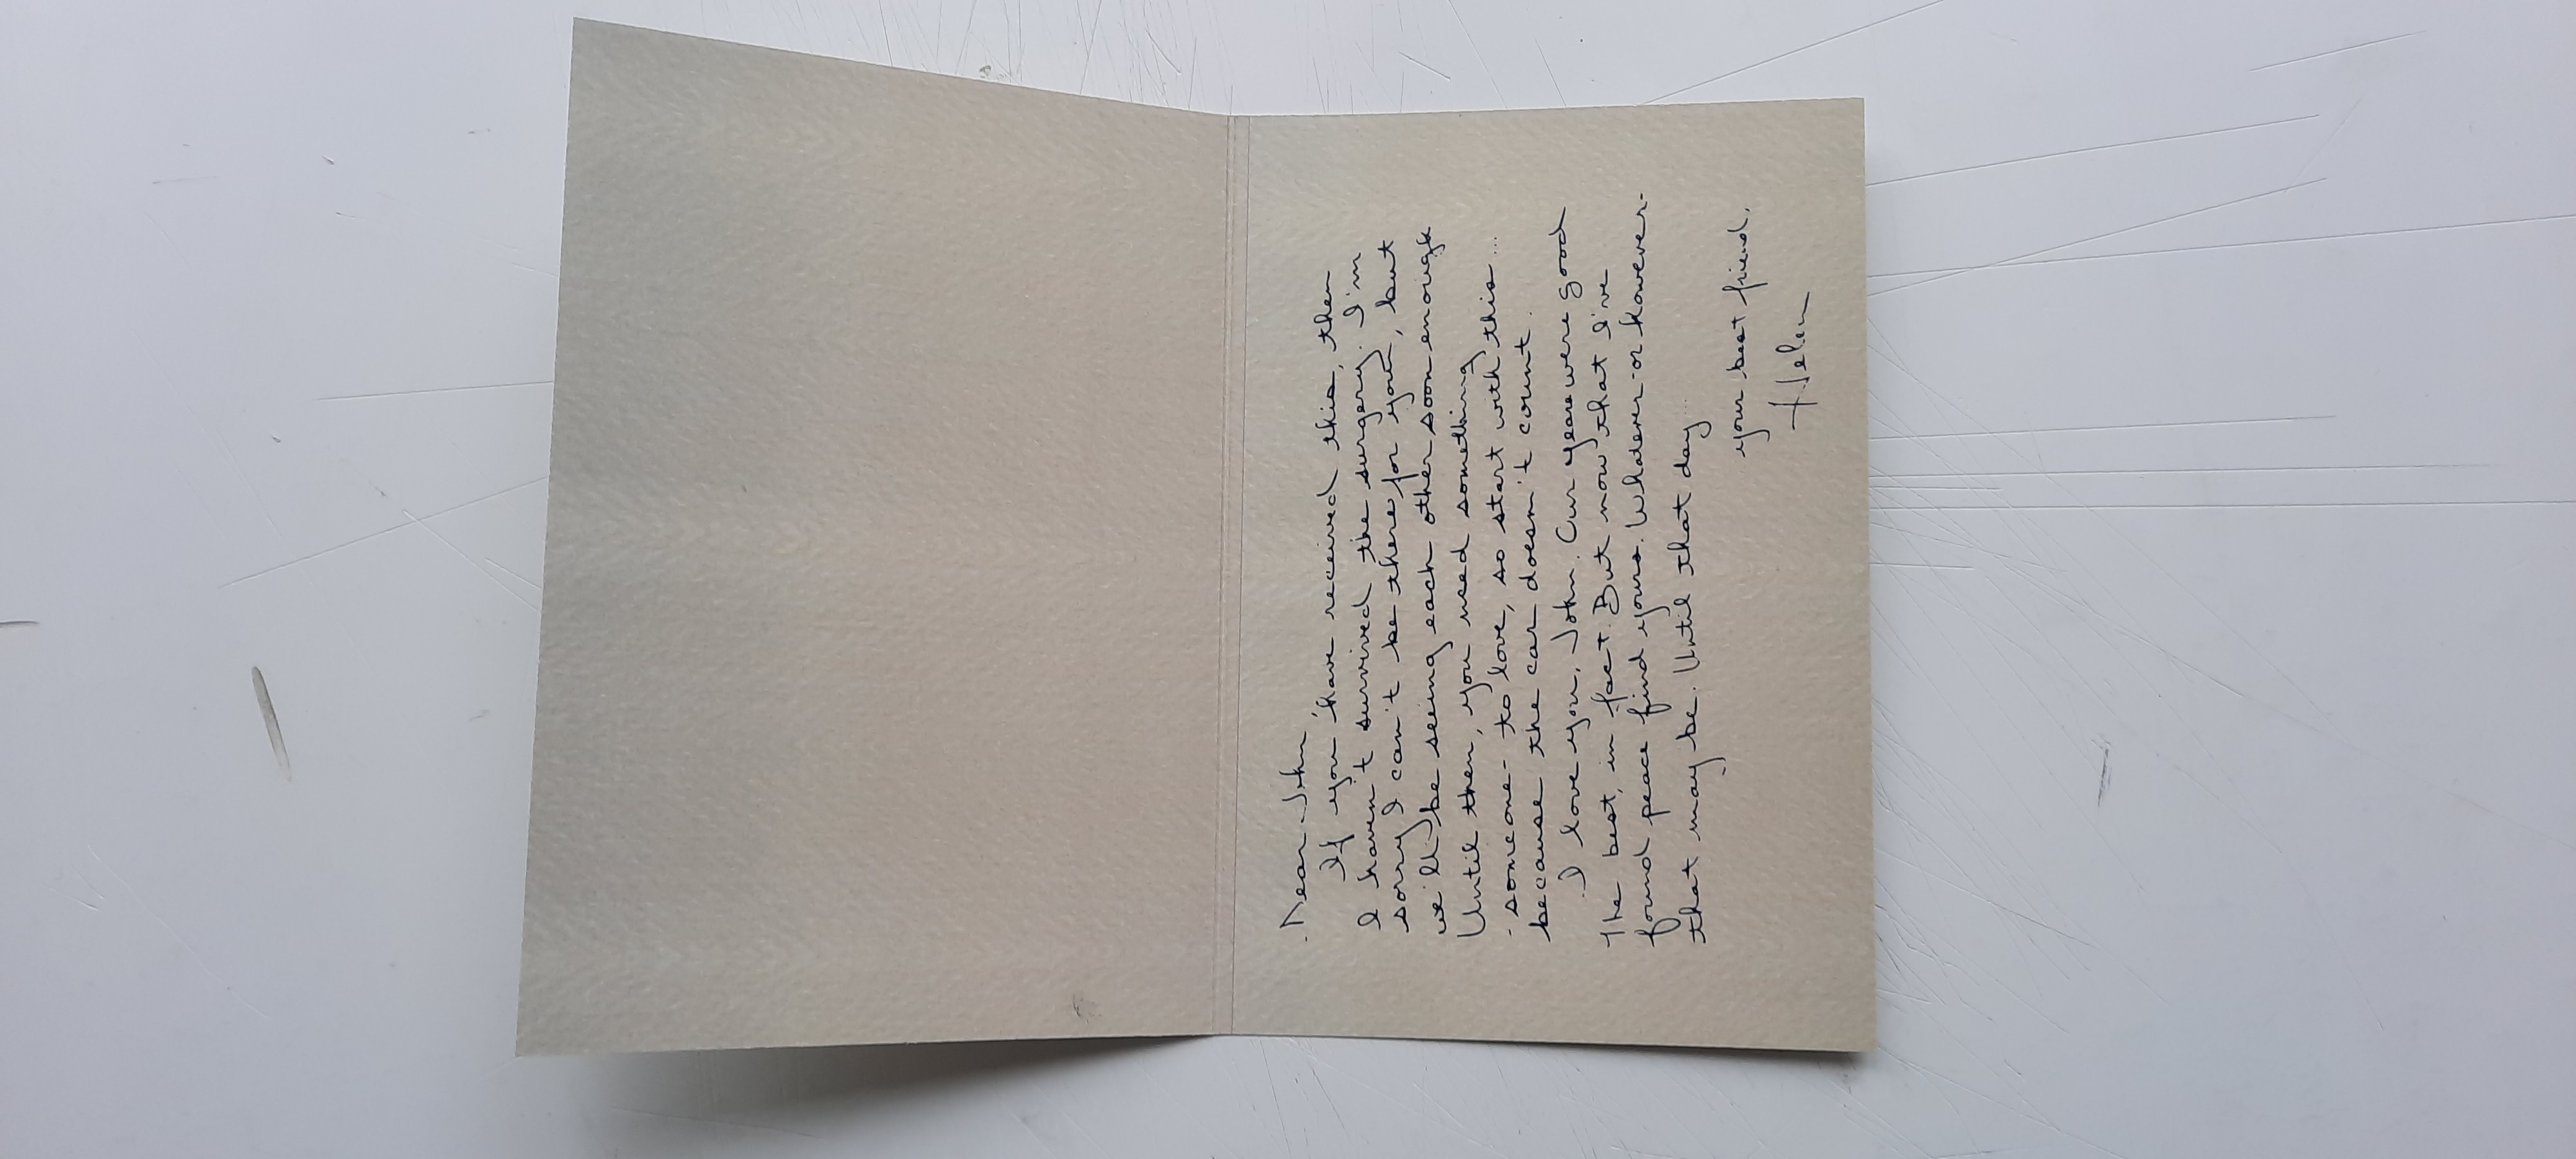 Dear John,
If you have received this, then
I haven't survived the surgery. I'm
sorry I can't be there for you, but
we'll be seeing each other soon enough
Until then, you need something
someone- to love, so start with this...
because the car doesn't count.
I love you, John. Our years were good
The best, in fact. But now that I've
found peace find yours. Whatever-or however-
that may be. Until that day...
your best friend,
Helen